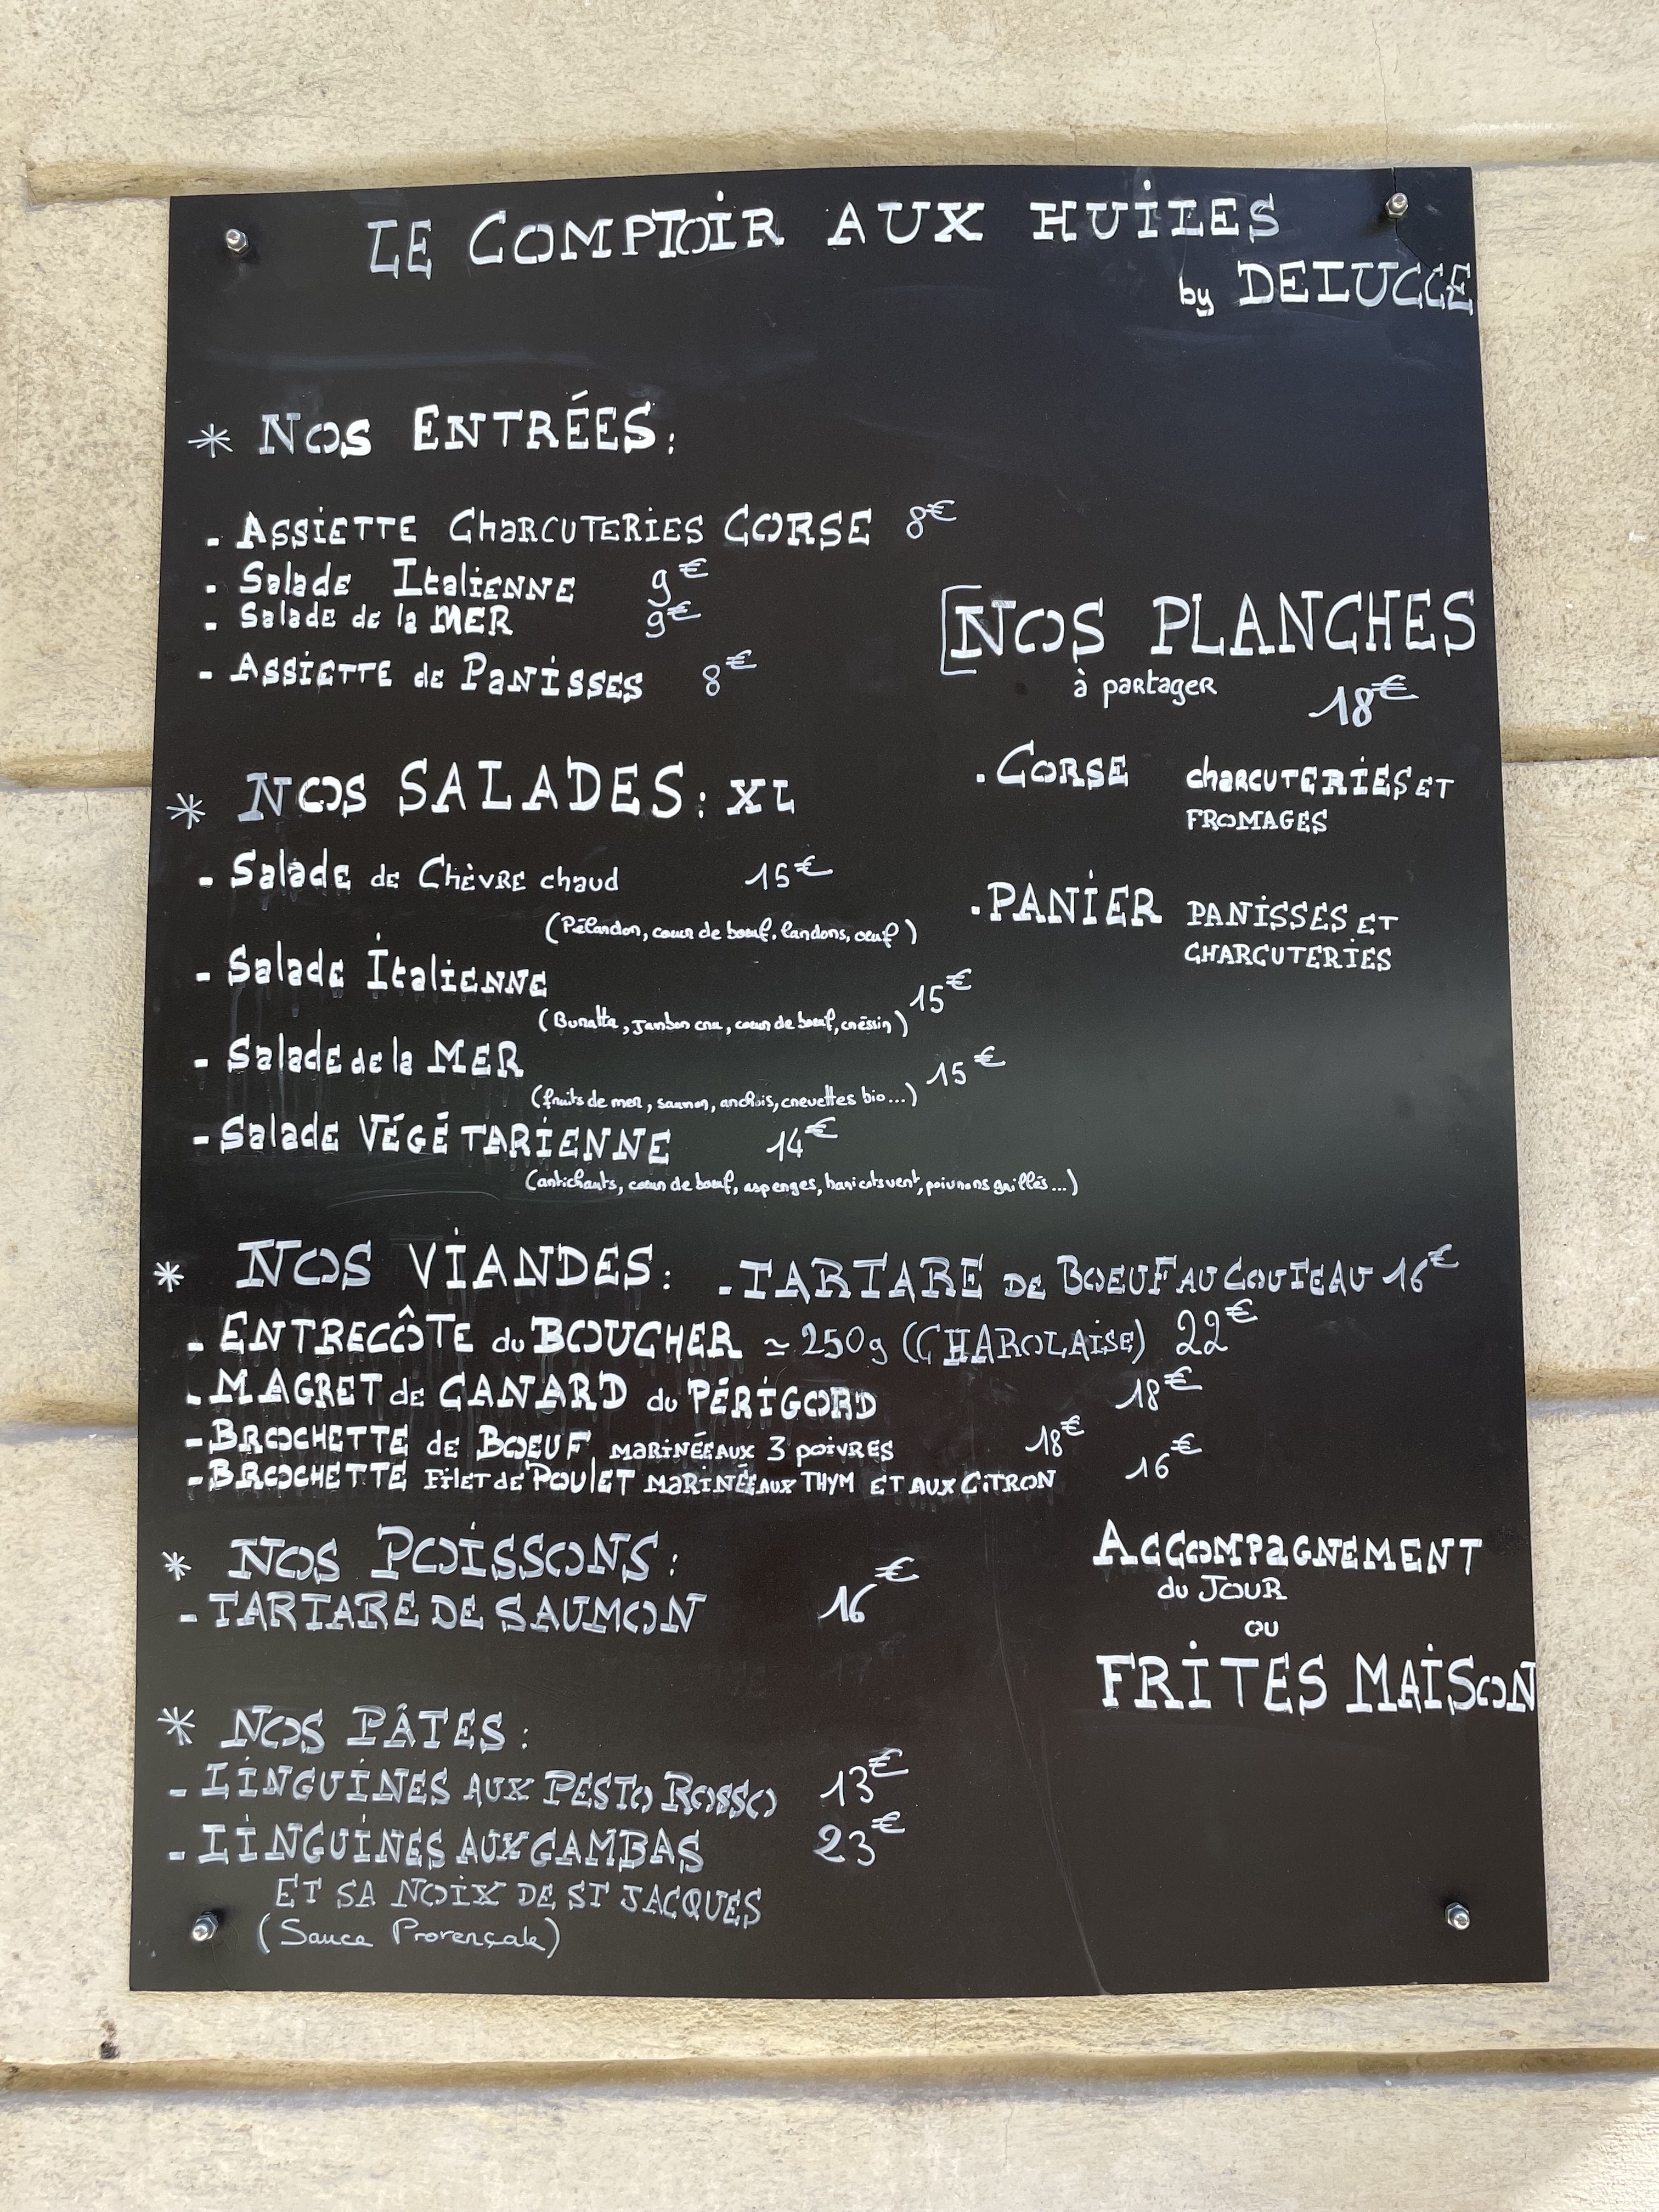 LE COMPTOIR AUX HUILES
by DELUCCE
* NOS ENTRÉES:
- ASSIETTE CHARCUTERIES CORSE 8€
- Salade ItaliENNE 9€
- Salade de la MER 9€
- ASSIETTE de PANISSES 8€
* NOS SALADES: XL
- Salade de Chèvre chaud 15€
(Pélardon, cœur de bœuf, lardons, œuf)
- Salade Italienne 15€
(Buratta, jambon cru, cœur de bœuf, créssin)
- Salade de la MER 15€
(fruits de mer, saumon, anchois, crevettes bio...)
- Salade VÉGÉTARIENNE 14€
(artichauts, cœur de bœuf, asperges, haricots vert, poivrons grillés...)
[NOS PLANCHES
à partager 18€
. CORSE charcuteries et
FROMAGES
. PANIER PANISSES ET
CHARCUTERIES
* NOS VIANDES: - TARTARE DE BOEUF AU COUTEAU 16€
- ENTRECÔTE du BOUCHER ≃ 250g (CHAROLAISE) 22€
- MAGRET de CANARD du PÉRIGORD 18€
- BROCHETTE de BOEUF MARINÉE AUX 3 POIVRES 18€
- BROCHETTE Filet de POULET MARINÉE AUX THYM ET AUX CITRON 16€
* NOS POISSONS:
- TARTARE DE SAUMON 16€
ACCOMPAGNEMENT
du JOUR
OU
FRITES MAISON
* NOS PÂTES:
- LINGUINES AUX PESTO ROSSO 13€
- LINGUINES AUX GAMBAS 23€
ET SA NOIX DE ST JACQUES
(Sauce Provençale)